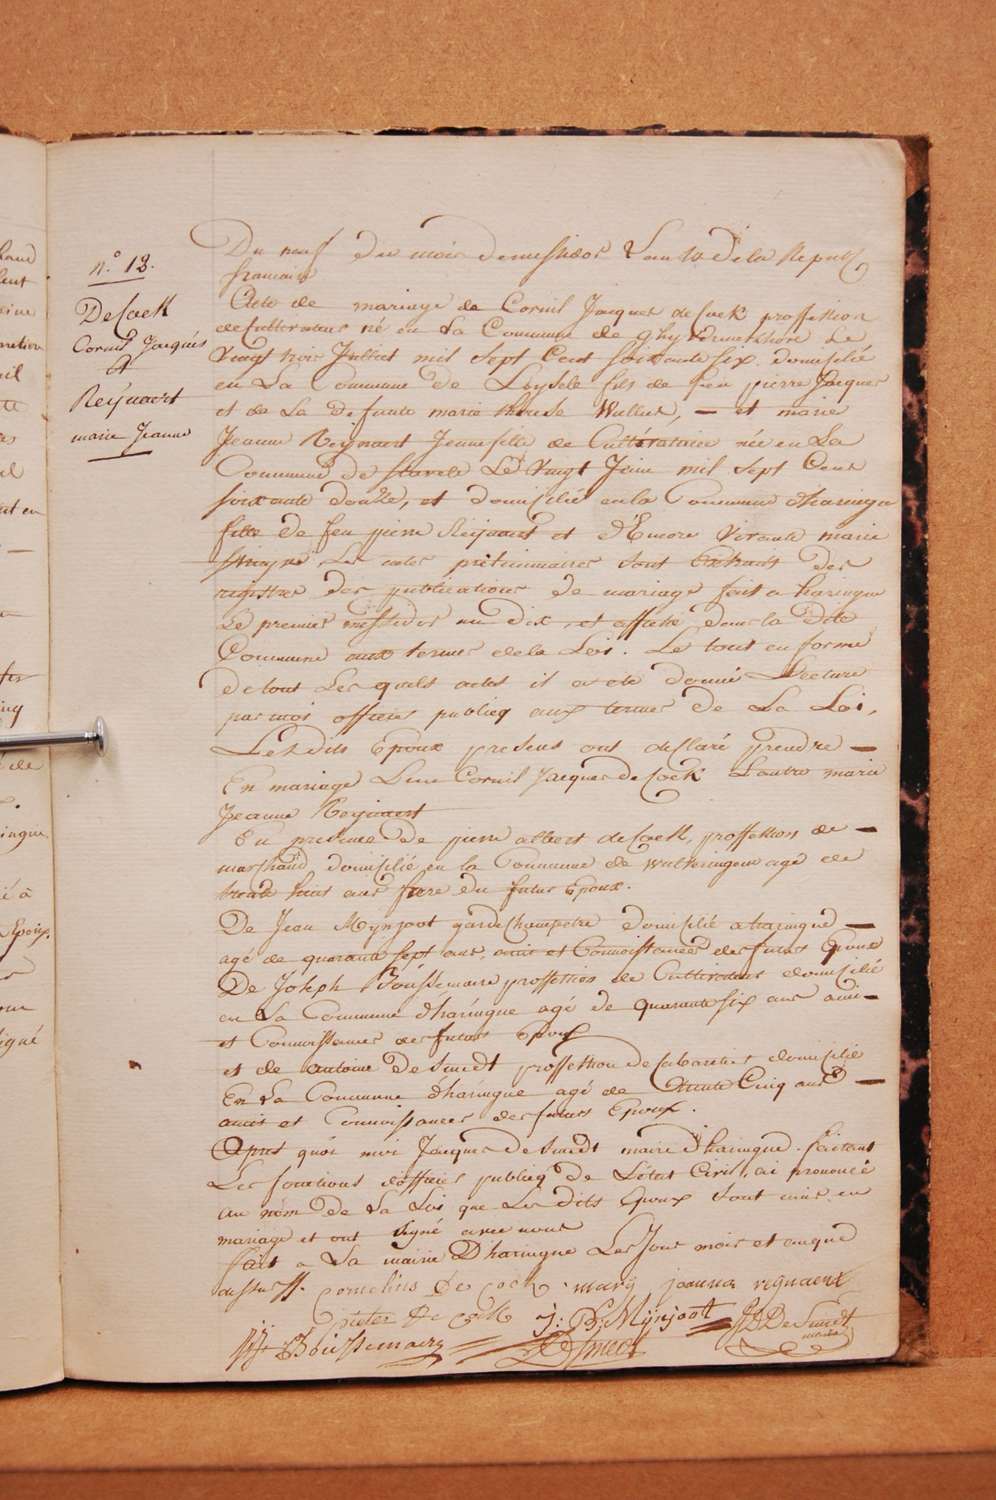 n.° 13.
De Cock
Cornil Jacques
&
Reijnaert
marie Jeanne
Du neuf du mois de messidor L'an 10 de la Repub
francaise
Acte de mariage de Cornil Jacques de Cock proffession
de Cultivateur né en La Commune de ghyverinckhove Le
Vingt trois Juillet mil sept Cent soixante six domicilié
en La Commune de Loysele fils de feu pierre Jacques
et de La defunte marie therese Wullus, — et marie
Jeanne Reijnaert Jeune fille de née en La
Commune de stavele Le Vingt Juin mil sept Cent
soixante douze, et domicilié en la Commune d'haringue
fille de feu pierre Reijnaert et d'Encore Vivante marie
Les actes préliminaires sont Extraits des
registres des publications de mariage fait a haringue
Le premier messidor an dix, et affiché dans la dite
Commune aux termes de la Loi. Le tout en forme
de tout Les quels actes il a été donné Lecture
par moi officier publicq aux termes de La Loi,
Lesdits Epoux presens ont declaré prendre —
En mariage L'un Cornil Jacques de Cock L'autre marie
Jeanne Reijnaert
En presence de pierre albert de Cock, proffession de —
marchand domicilié en la Commune de age de
trente huit ans frere du futur Epoux.
De Jean Mynjoot garde Champetre domicilié a haringue —
agé de quarante sept ans, ami et Connoissances des futurs Epoux
De Joseph Boússemaere proffession de Cultivateur domicilié
en La Commune d'haringue agé de quarante six ans ami —
et Connoissances des futurs Epoux
et de antoine De Smedt proffession de Cabaretier domicilié
En La Commune d'haringue agé de trente Cinq ans —
amit et Connoissances des futurs Epoux.
Apres quoi moi Jacques De Smedt maire d'haringue. faisant
Les fonctions d'officier publicq de L'état Civil, ai prononcé
au nom de La Loi que Les dits Epoux sont unis en
mariage et ont signé avec nous
fait a La mairie D'haringue Les Jour mois et an que
dessus
cornelius De Cock marij joanna regnaert
pieter de Cock J: B: Mijnjoot JD De Smedt
maire
Boússemaere DeSmedt